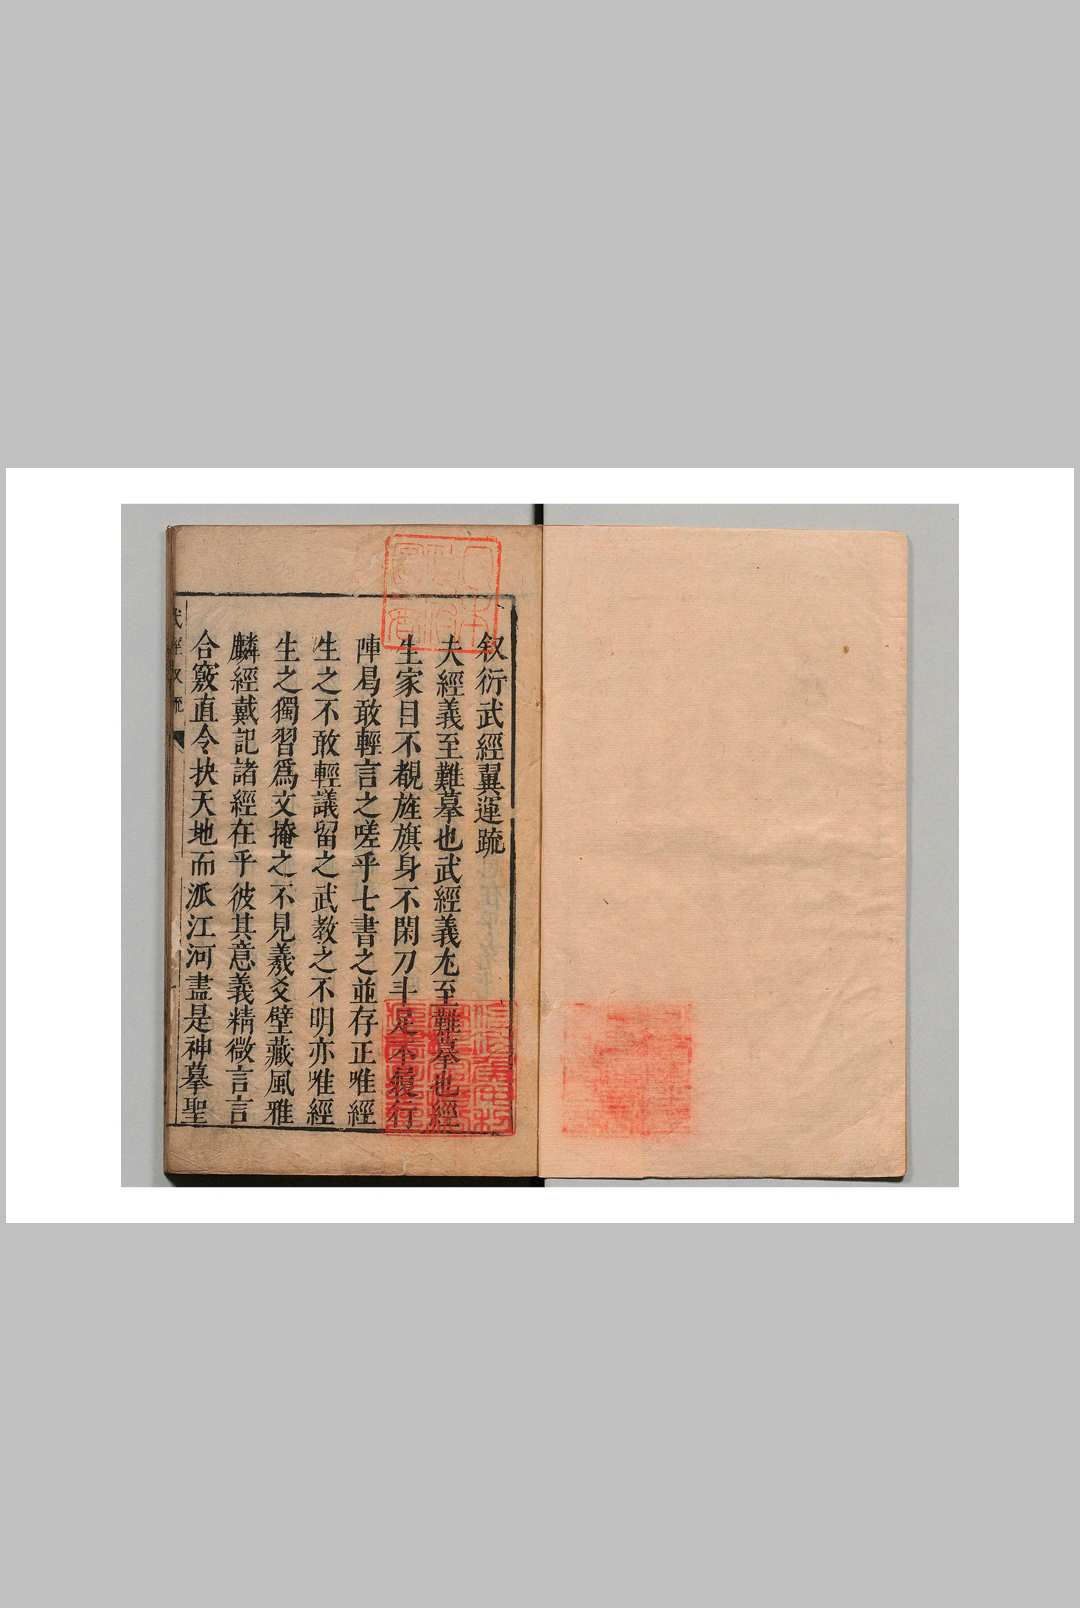 叙衍武經翼運疏
夫經義至難摹也武經義尢至難摹也經
生家目不覩旌旗身不閑刀斗足不履行
陣曷敢輕言之嗟乎七書之並存正唯經
生之不敢輕議留之武教之不明亦唯經
生之獨習爲文掩之不見羲爻壁藏風雅
麟經戴記諸經在乎彼其意義精微言言
合竅直令抉天地而派江河盡是神摹聖
日本政府圖書